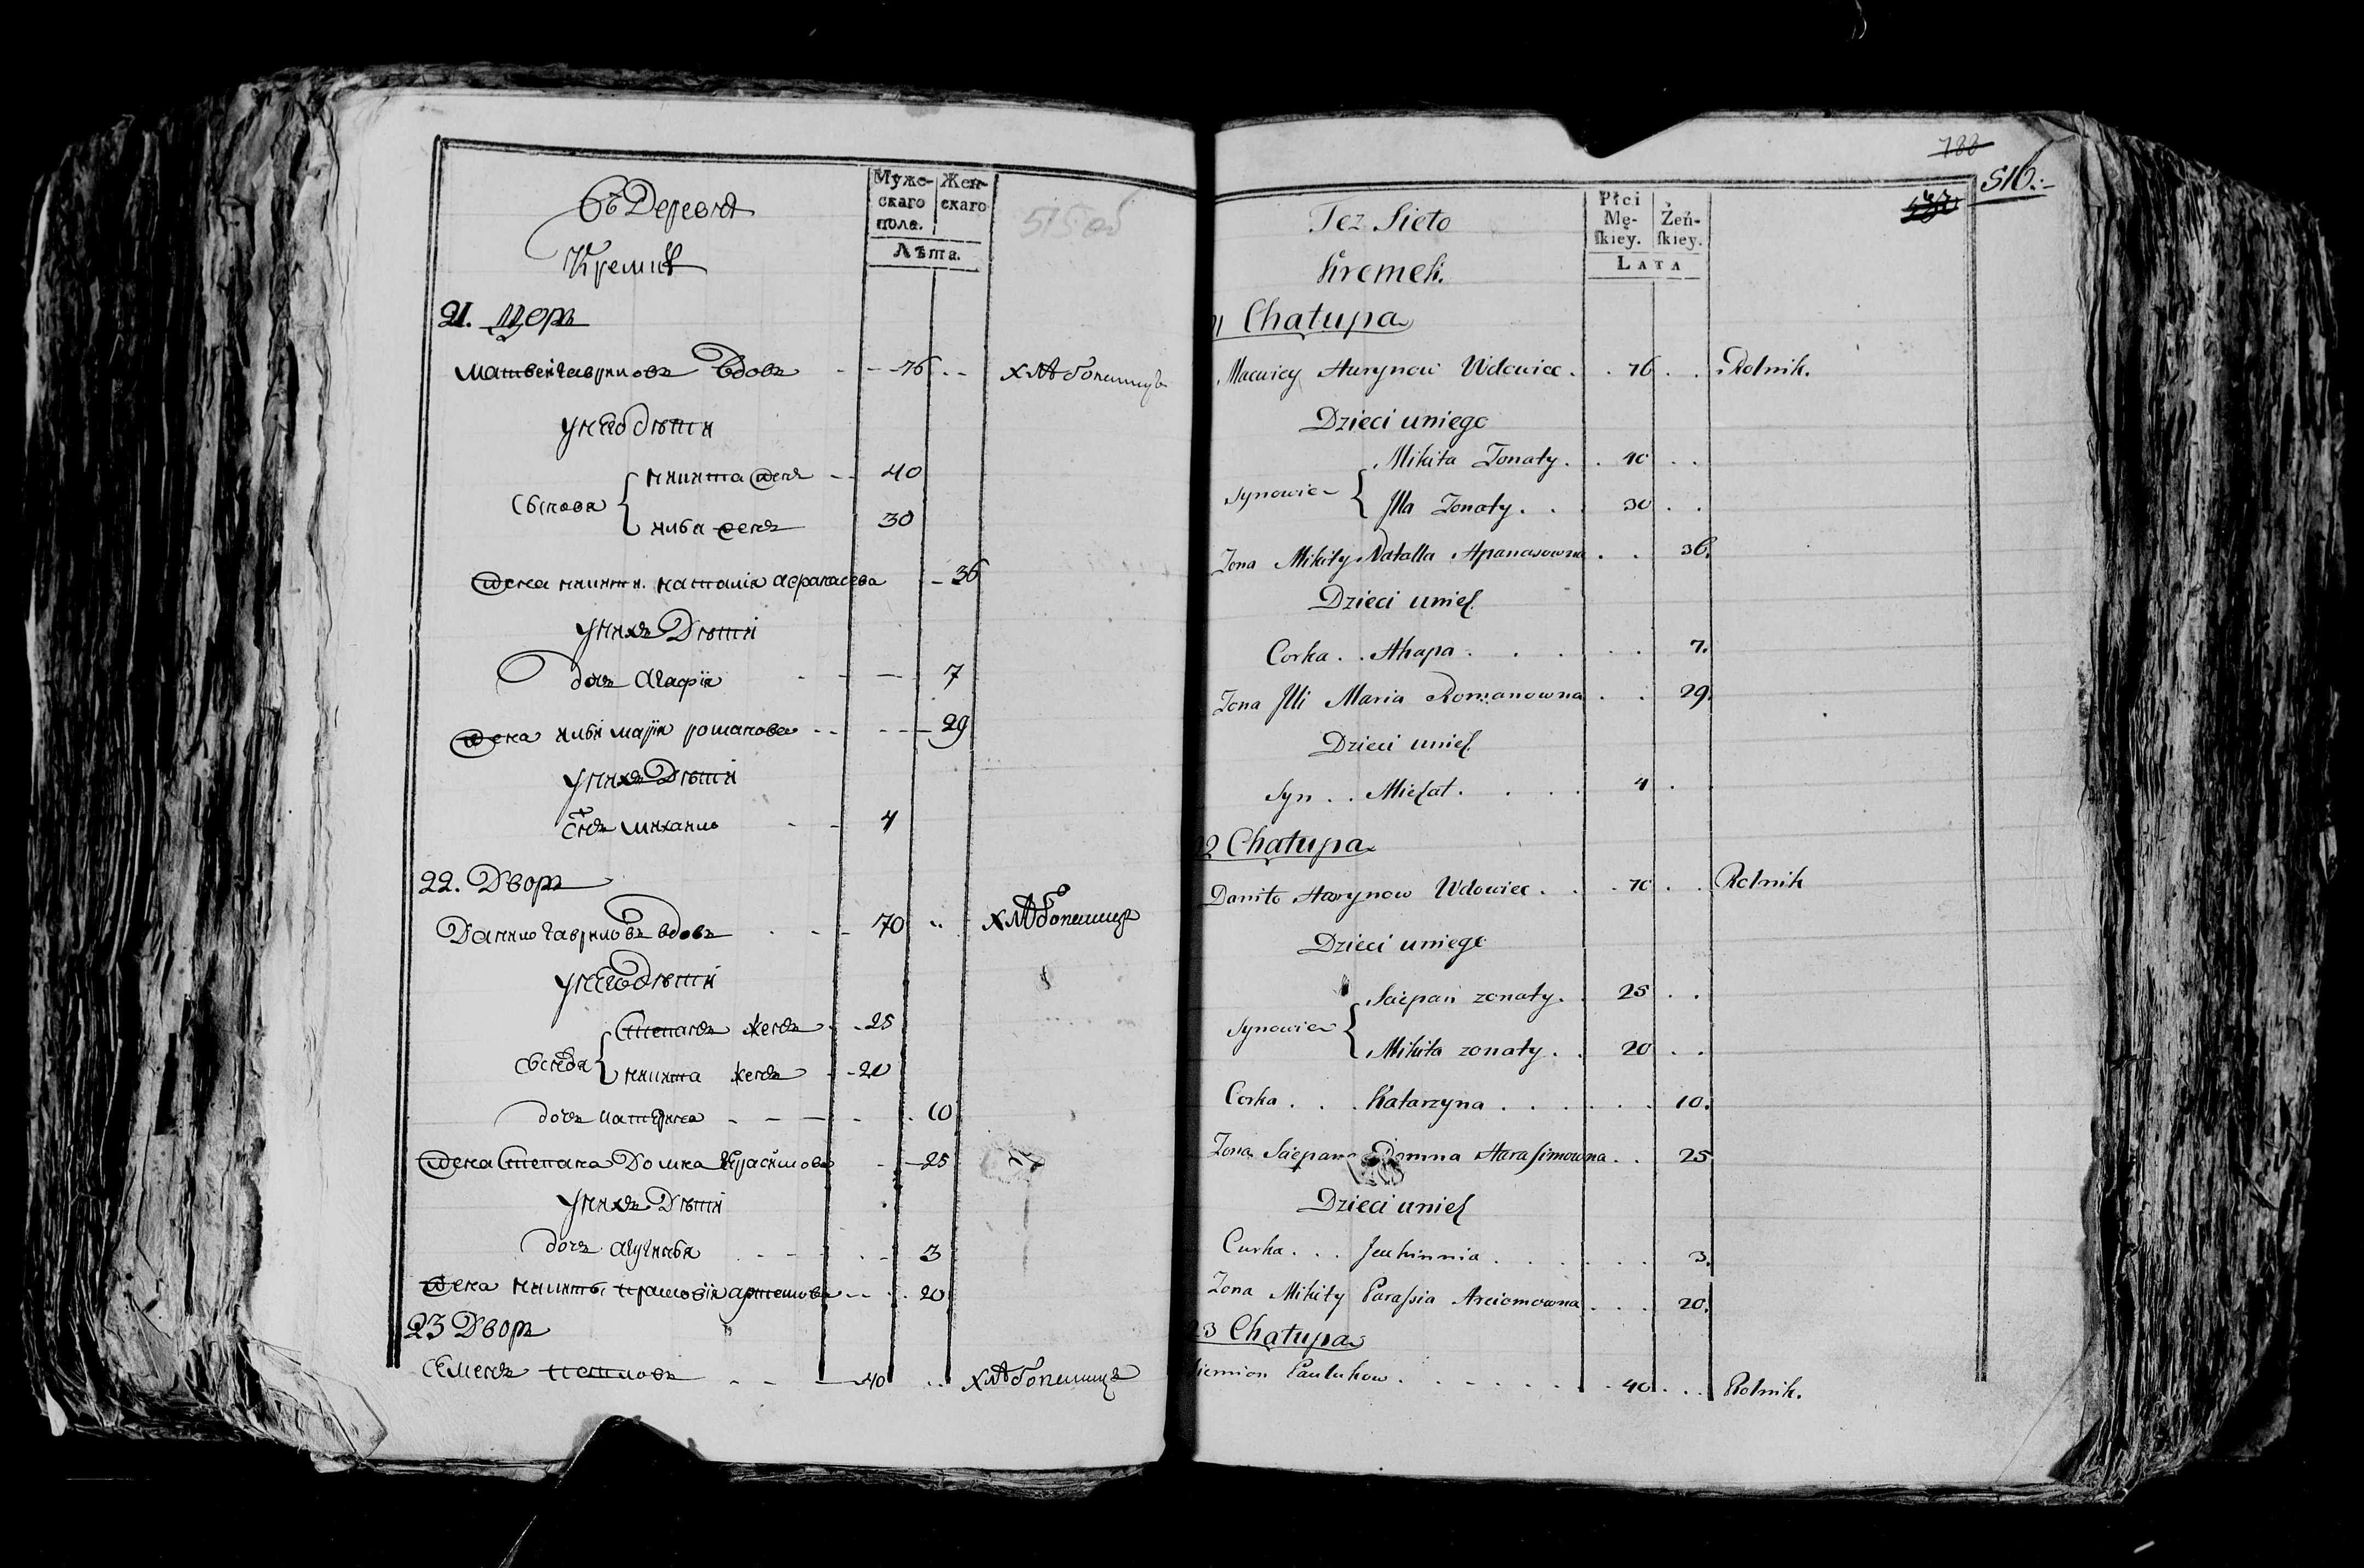 Въ Деревнѣ
Кремкѣ
Муже-
скаго
пола.
Жен-
скаго
Лѣта.
515 об
21. Дворъ
Матвей Гавриловъ вдовъ 76 хлѣбопашецъ
у него дѣти
Сыновя { никита женъ 40
илья женъ 30
жена никиты наталія афанасева 36
у нихъ Дѣти
дочь агафія 7
жена ильи марія романова 29
у нихъ Дѣти
Сынъ михаилъ 4
22. Дворъ
Данило Гавриловъ вдовъ 70 хлѣбопашецъ
у него дѣти
Сыновя { Степанъ женъ 25
никита женъ 20
дочь катерина 10
жена Степана Домна Герасимова 25
у нихъ Дѣти
дочь 3
жена никиты прасковія артемова 20
23 Дворъ
Семенъ 40 хлѣбопашецъ
788
516.
Też Sieło
Kremek.
Płci
Mę-
ſkiey.
Żeń-
ſkiey.
LATA
21 Chałupa
Maciwiey Hurynow Wdowiec. 76 Rolnik.
Dzieci uniego
Synowie { Mikita Zonaty. 40
Jlla Zonaty. 30
Zona Mikity Natalla Apanasowna 36.
Dzieci unieh
Corka Ahapa 7.
Zona Jlli Maria Romanowna 29.
Dzieci unieh
Syn Miehał 4
22 Chałupa
Daniło Hurynow Wdowiec. 70 Rolnik
Dzieci uniego
Synowie { Sciepan zonaty. 25
Mikita zonaty. 20
Corka Katarzyna 10.
Zona Sciepana Domna Haraſimowna 25
Dzieci unieh
Curka Jeuhinnia 3.
Zona Mikity Paraſsia Arciomowna 20.
23 Chałupa
Siemion Paulukow 40 Rolnik.